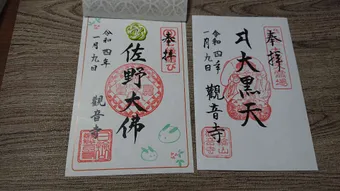 奉拝
佐野大佛
令和四年
一月九日
観音寺
奉拝
大黒天
令和四年
一月九日
觀音寺